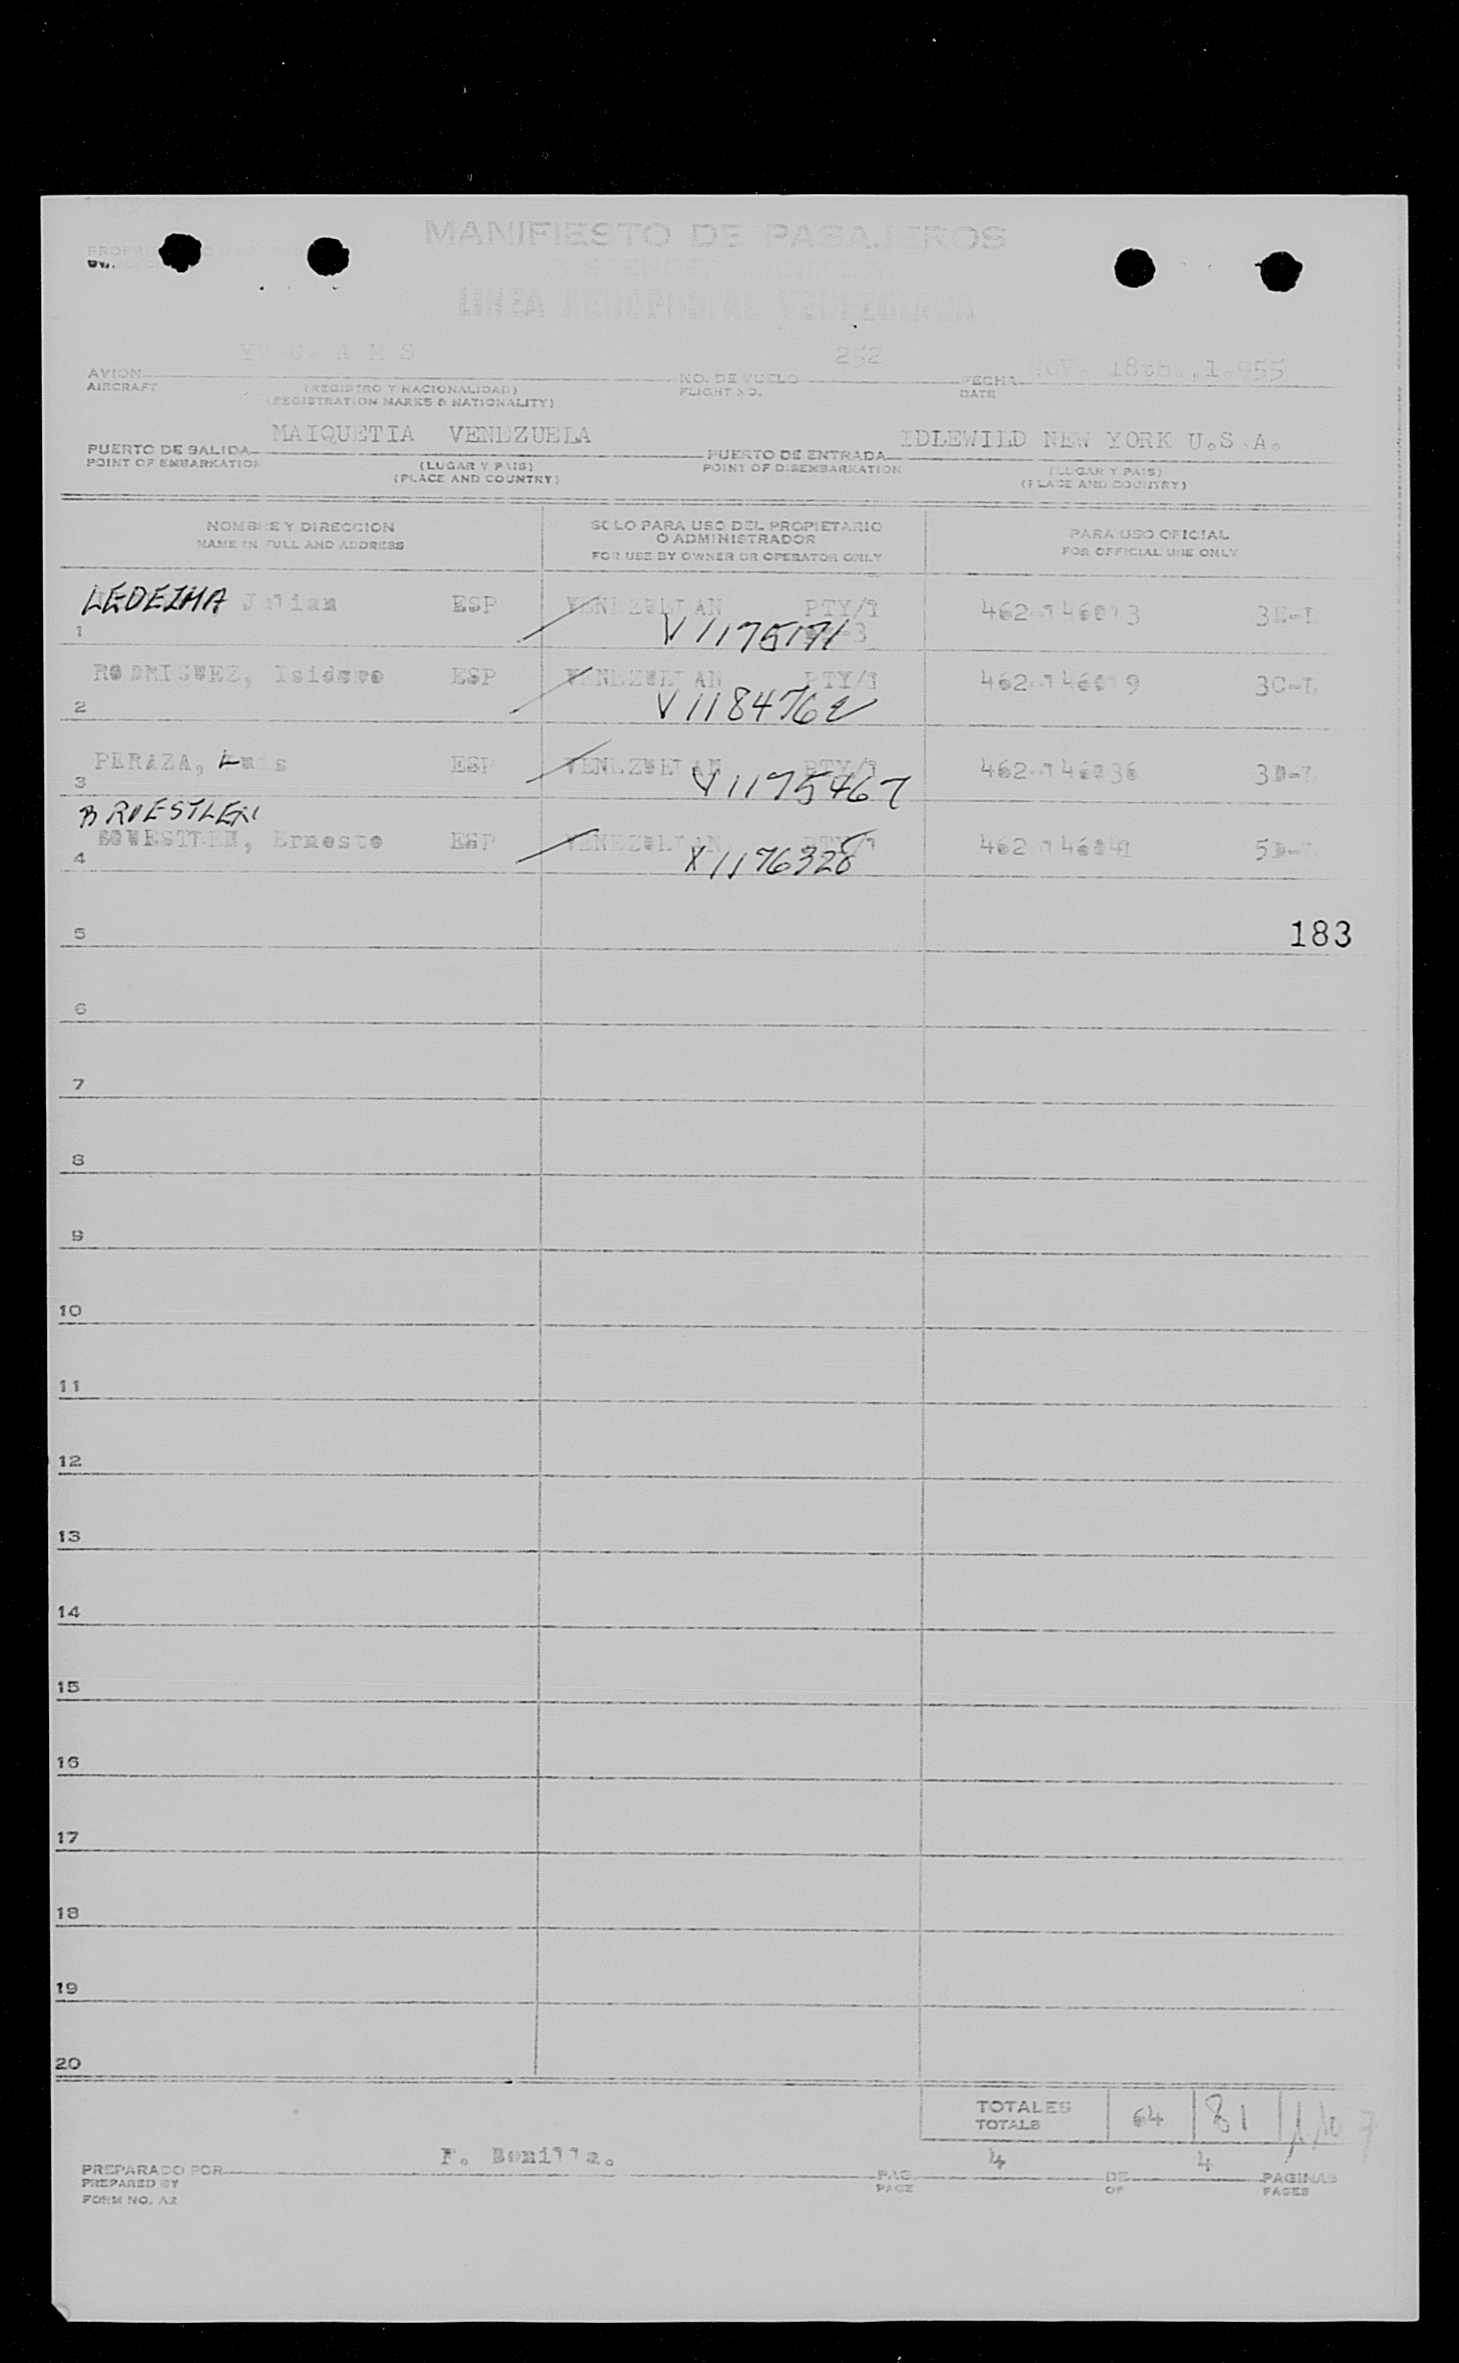 MANIFIESTO DE PASAJEROS
LINEA AEROPOSTAL VENEZOLANA
AVION
AIRCRAFT
(REGISTRO Y NACIONALIDAD)
(REGISTRATION MARKS & NATIONALITY)
NO. DE VUELO 252
FLIGHT NO.
FECHA NOV. 18th.,1.955
DATE
PUERTO DE SALIDA MAIQUETIA VENEZUELA
POINT OF EMBARKATION
(LUGAR Y PAIS)
(PLACE AND COUNTRY)
PUERTO DE ENTRADA IDLEWILD NEW YORK U.S.A.
POINT OF DISEMBARKATION
(LUGAR Y PAIS)
(PLACE AND COUNTRY)
NOMBRE Y DIRECCION
NAME IN FULL AND ADDRESS
SOLO PARA USO DEL PROPIETARIO
O ADMINISTRADOR
FOR USE BY OWNER OR OPERATOR ONLY
PARA USO OFICIAL
FOR OFFICIAL USE ONLY
1 LEDEZMA Julian ESP VENEZUELAN PTY/1
V1175171
2 RODRIGUEZ, Isidoro ESP VENEZUELAN PTY/1
V1184762
3 PERAZA, Luis ESP VENEZUELAN PTY/1
V1175467
BRUESTLEN
4 Ernesto ESP VENEZUELAN
1176328
183
5
6
7
8
9
10
11
12
13
14
15
16
17
18
19
20
TOTALES 64 81
TOTALS
PREPARADO POR F. Bonilla.
PREPARED BY
FORM NO. A2
PAG. 4 DE 4 PAGINAS
PAGE OF PAGES